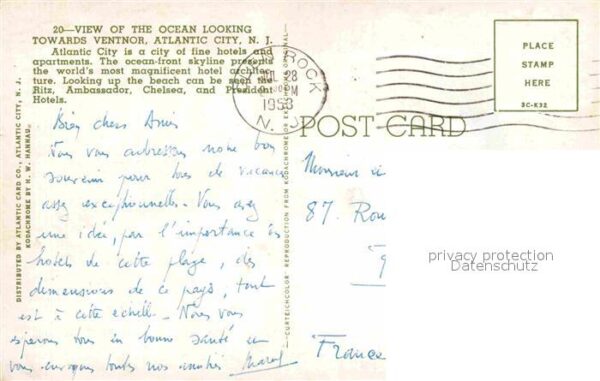 20—VIEW OF THE OCEAN LOOKING
TOWARDS VENTNOR, ATLANTIC CITY, N. J.
Atlantic City is a city of fine hotels and
apartments. The ocean-front skyline presents
the world's most magnificent hotel architec-
ture. Looking up the beach can be seen the
Ritz, Ambassador, Chelsea, and President
Hotels.
Bien chers Amis
Nous vous adressons notre bon
souvenir pour lors de vacances
assez exceptionnelles. Vous avez
une idée, par l'importance des
hotels de cette plage, des
dimensions de ce pays, tout
est à cette echelle. Nous vous
esperons tous en bonne santé et
vous envoyons toutes nos amitiés
DISTRIBUTED BY ATLANTIC CARD CO., ATLANTIC CITY, N. J.
KODACHROME BY H. W. HANNAU.
—CURTEICHCOLOR REPRODUCTION FROM KODACHROME OR EKTACHROME ORIGINAL—
DOCK
28
PM
1953
N.
POST CARD
PLACE
STAMP
HERE
3C-K32
Monsieur
87. Rou
France
privacy protection
Datenschutz